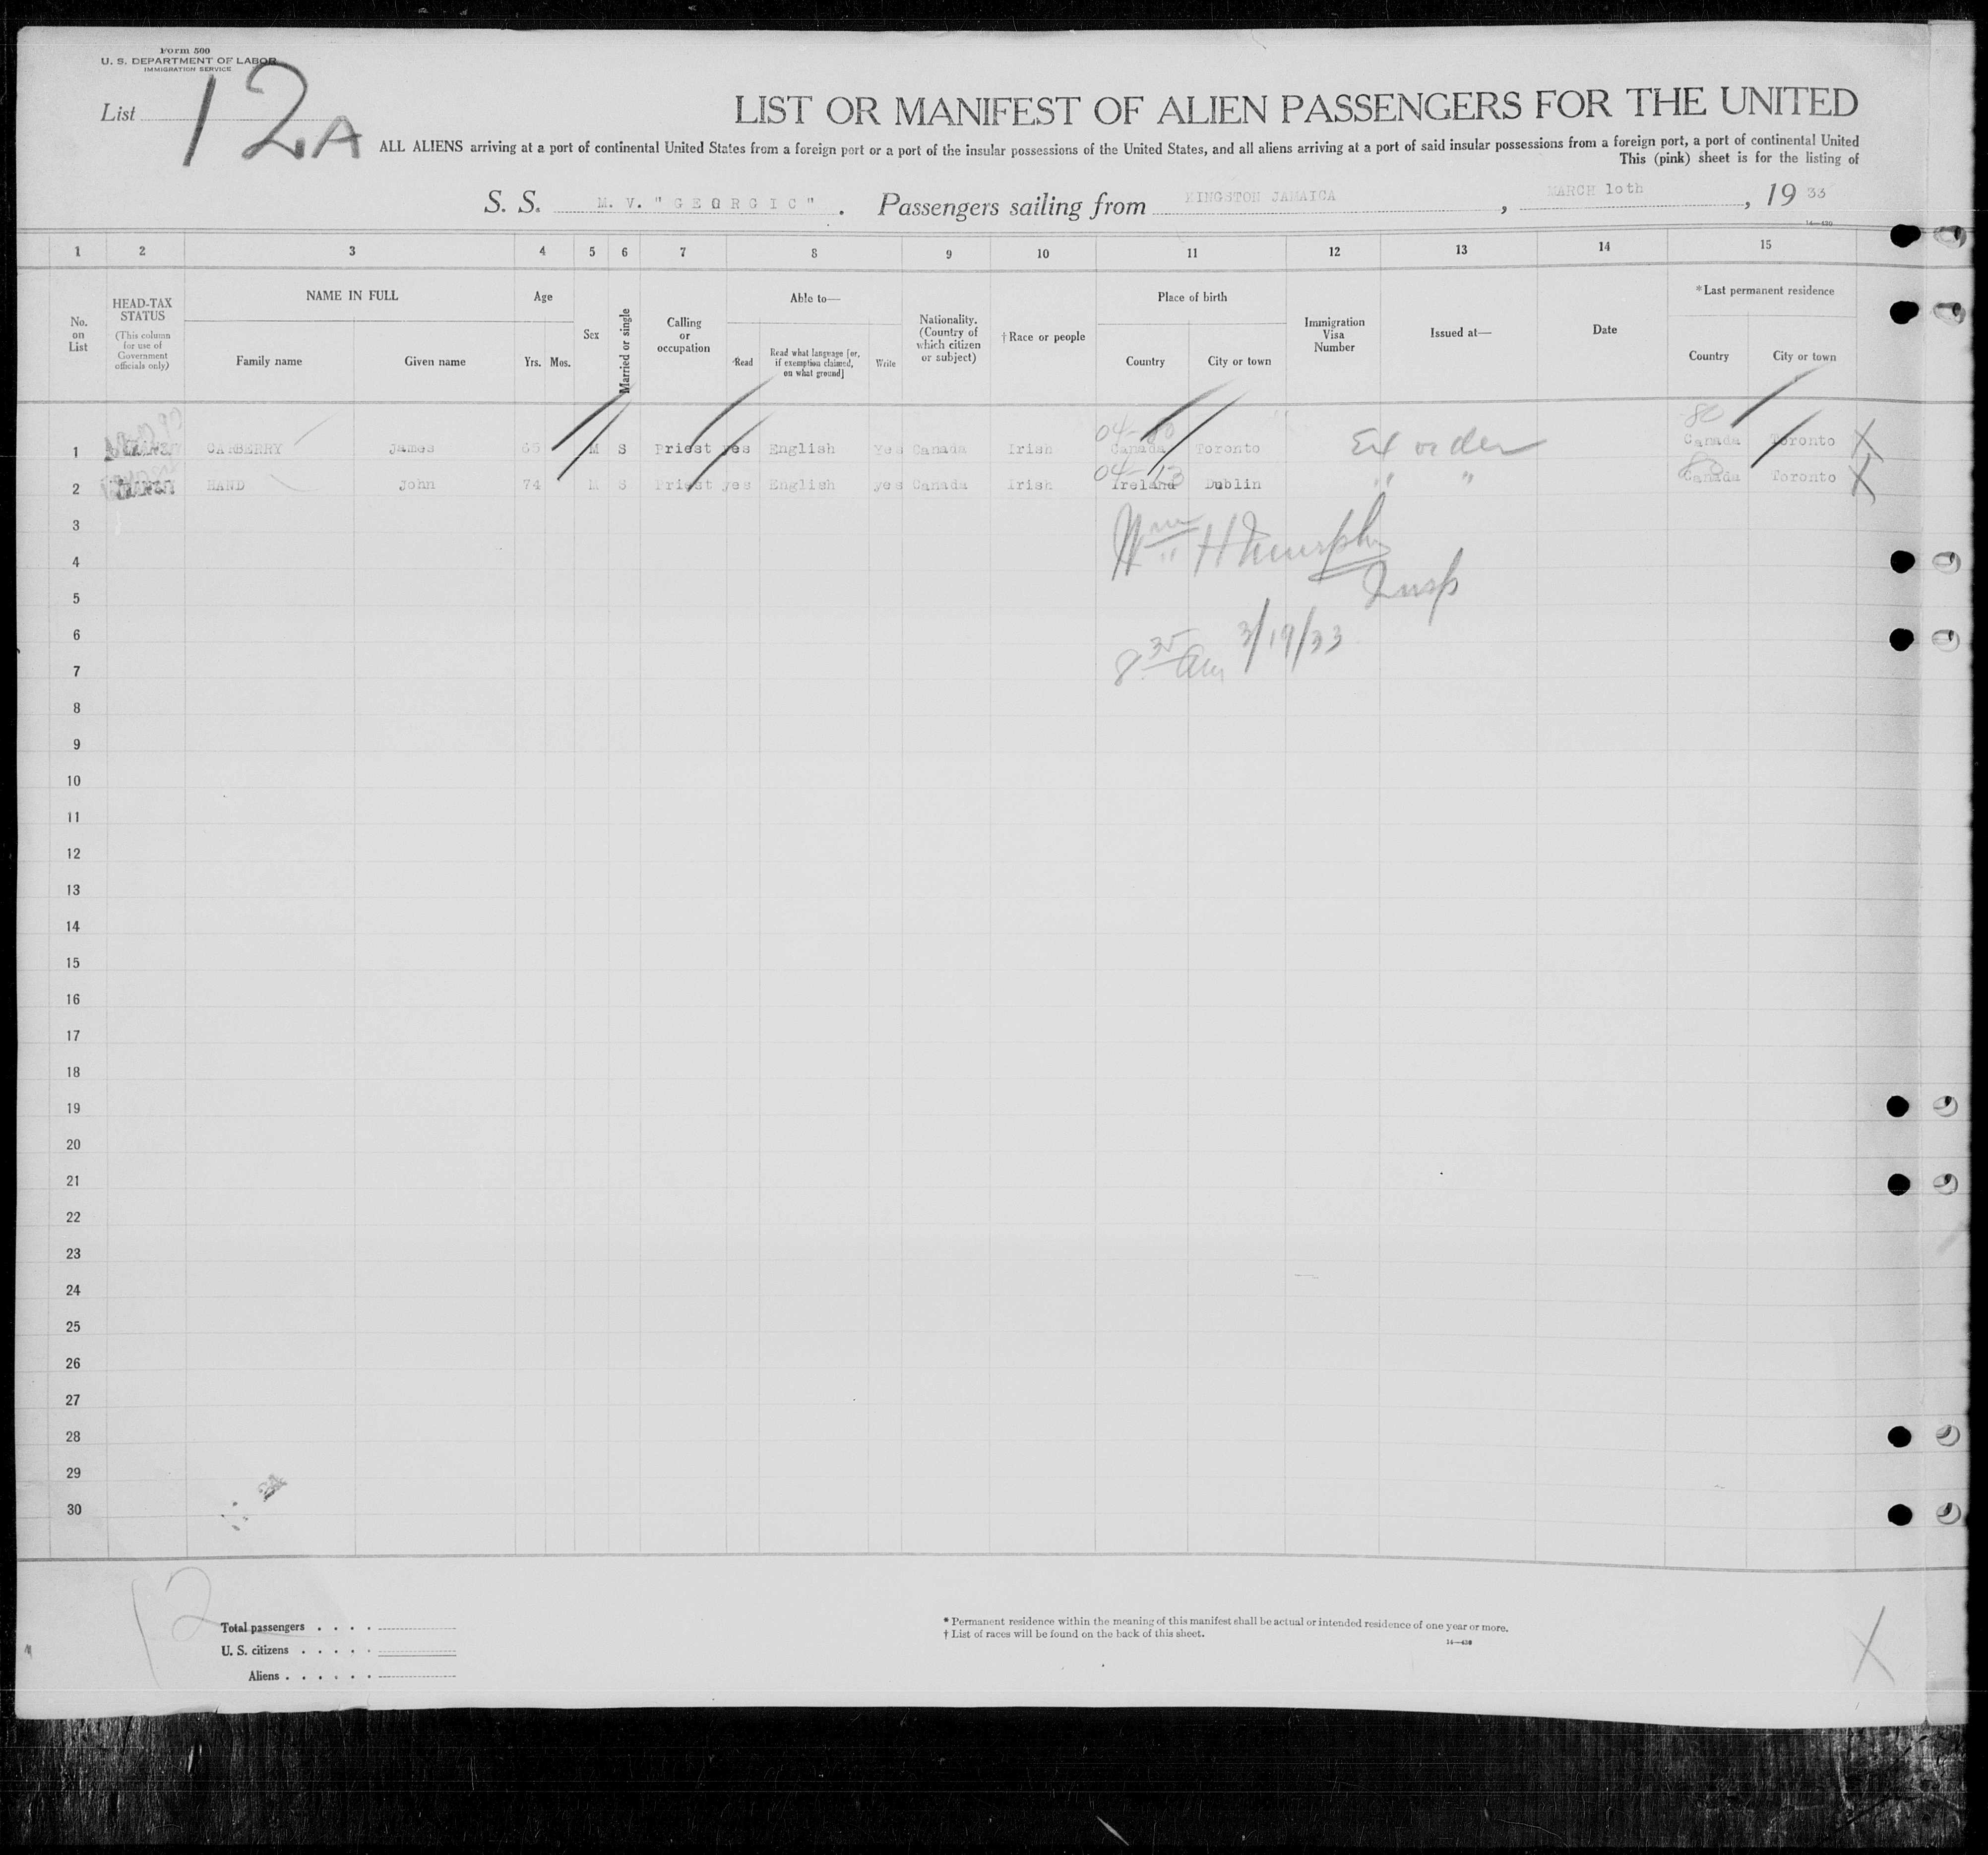 Form 500
U. S. DEPARTMENT OF LABOR
IMMIGRATION SERVICE
List 12A
LIST OR MANIFEST OF ALIEN PASSENGERS FOR THE UNITED
ALL ALIENS arriving at a port of continental United States from a foreign port or a port of the insular possessions of the United States, and all aliens arriving at a port of said insular possessions from a foreign port, a port of continental United
This (pink) sheet is for the listing of
S. S. M. V. "GEORGIC". Passengers sailing from KINGSTON JAMAICA, MARCH 10th, 19 33
14—430
1 2 3 4 5 6 7 8 9 10 11 12 13 14 15
No. on List
HEAD-TAX STATUS
(This column for use of Government officials only)
NAME IN FULL
Family name Given name
Age
Yrs. Mos.
Sex
Married or single
Calling or occupation
Able to—
Read
Read what language [or, if exemption claimed, on what ground]
Write
Nationality. (Country of which citizen or subject)
†Race or people
Place of birth
Country City or town
Immigration Visa Number
Issued at—
Date
*Last permanent residence
Country City or town
1 CARBERRY James 65 M S Priest yes English Yes Canada Irish Canada Toronto Ex order Canada Toronto X
2 HAND John 74 M S Priest yes English yes Canada Irish Ireland Dublin " " Canada Toronto X
3
Wm H Murphy
4
Insp
5
6
3/19/33
7
8 35 am
8
9
10
11
12
13
14
15
16
17
18
19
20
21
22
23
24
25
26
27
28
29
30
12
Total passengers . . . .
U. S. citizens . . . . .
Aliens . . . . . .
* Permanent residence within the meaning of this manifest shall be actual or intended residence of one year or more.
† List of races will be found on the back of this sheet.
14—430
X